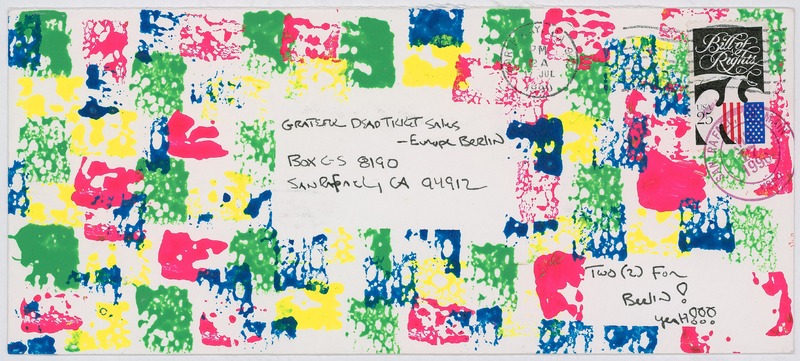 GRATEFUL DEAD TICKET SALES
– EUROPE BERLIN
BOX CS 8190
SAN RAFAEL, CA 94912
TWO (2) FOR
BERLIN!
YEAH!!!
Bill of
Rights
25
PM
JUL
1990